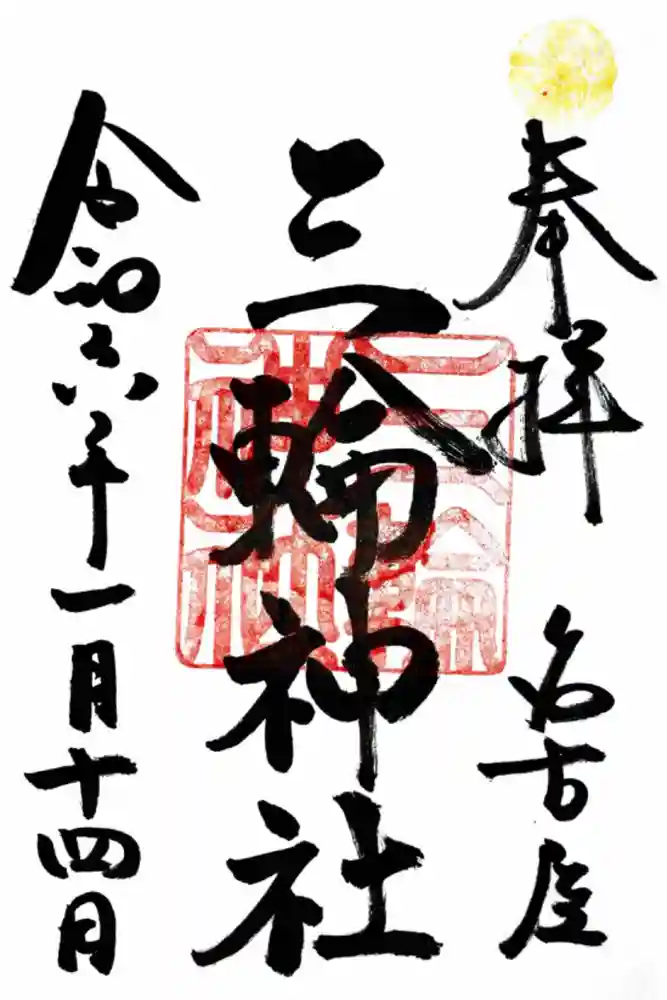 奉拝 名古屋
三輪神社
三輪神社
令和六年一月十四日